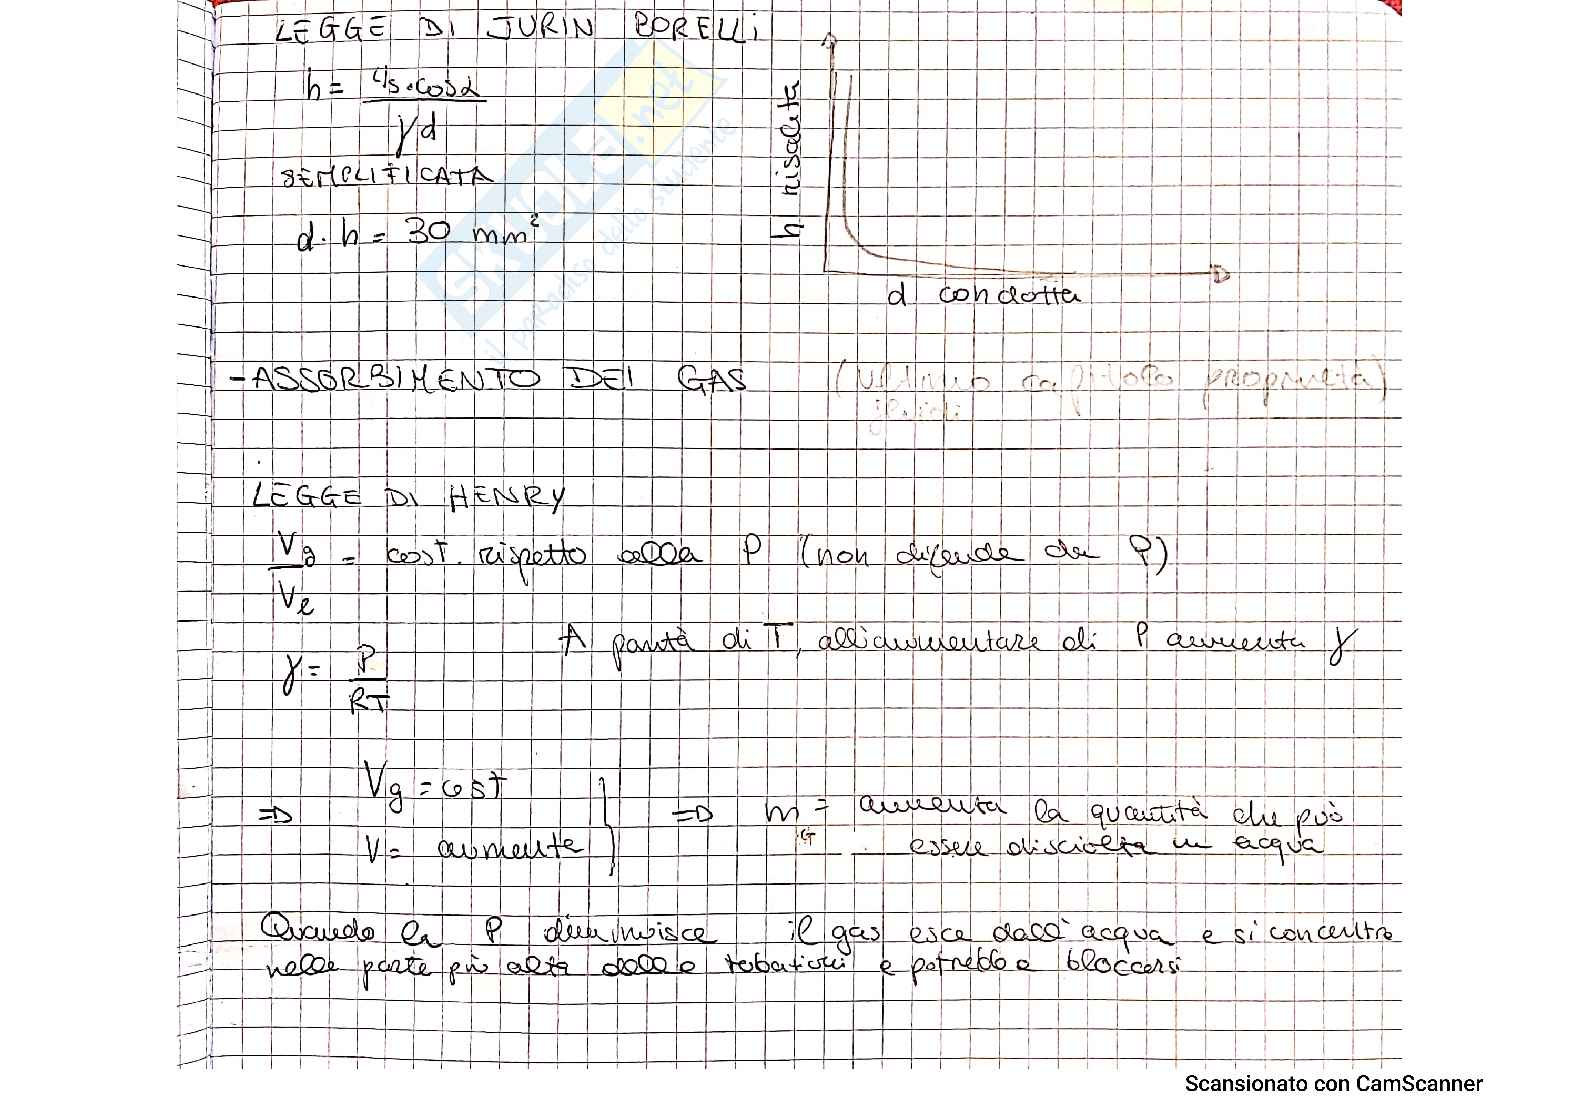 LEGGE DI JURIN BORELLI
h = 4s·cosα / γd
SEMPLIFICATA
d·h = 30 mm²
h risalita
d condotta
SKUOLA.net
il paradiso dello studente
- ASSORBIMENTO DEI GAS (ultimo capitolo proprietà
LEGGE DI HENRY
Vg / Vl = cost. rispetto alla P (non dipende da P)
A parità di T, all'aumentare di P aumenta γ
γ = P / RT
Vg = cost
γ = aumenta
⇒ ⇒ mG = aumenta la quantità che può
essere disciolta in acqua
Quando la P diminuisce il gas esce dall'acqua e si concentra
nella parte più alta delle tubazioni e potrebbe bloccarsi
Scansionato con CamScanner